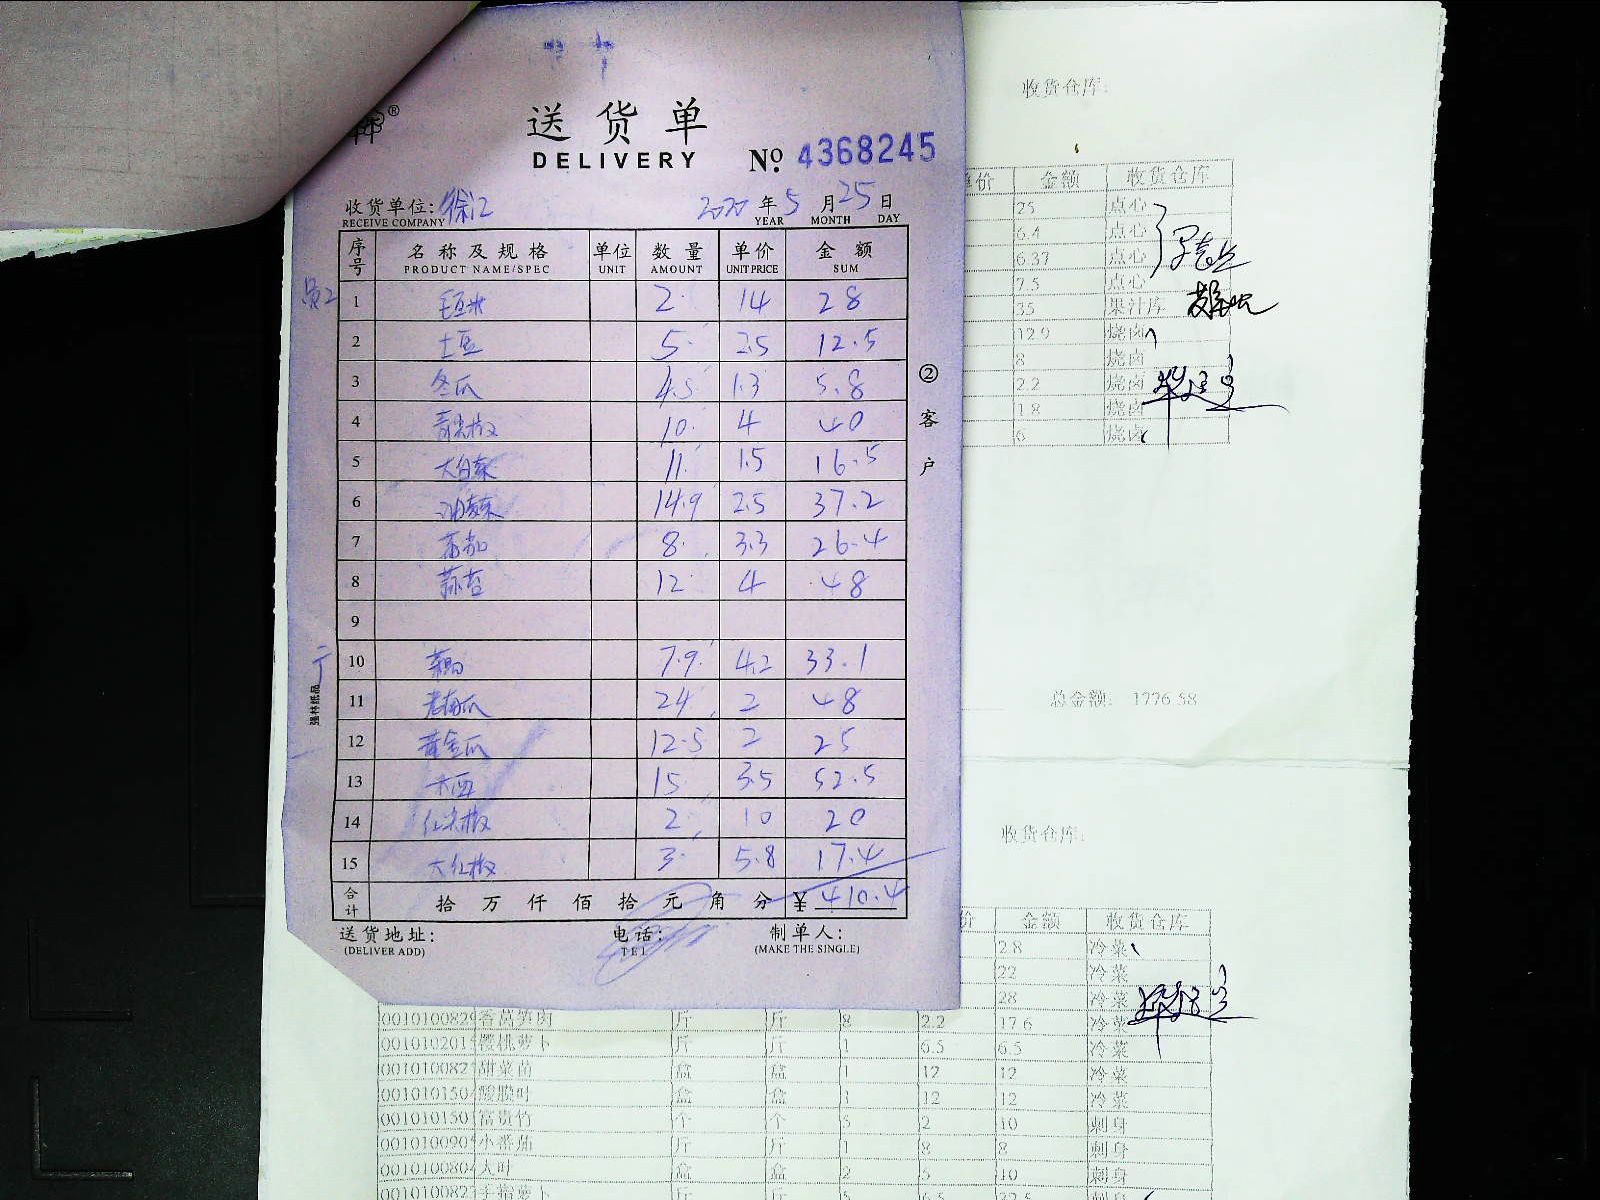 送货单
DELIVERY
№ 4368245
收货单位: 徐江 2020 年 5 月 25 日
RECEIVE COMPANY YEAR MONTH DAY
序号 名称及规格 单位 数量 单价 金额
PRODUCT NAME/SPEC UNIT AMOUNT UNIT PRICE SUM
员工
1 毛豆米 2 14 28
2 土豆 5 2.5 12.5
3 冬瓜 4.5 1.3 5.8
4 青尖椒 10 4 40
5 大白菜 11 1.5 16.5
6 油麦菜 14.9 2.5 37.2
7 8 3.3 26.4
8 蒜苔 12 4 48
9
10 7.9 4.2 33.1
11 老南瓜 24 2 48
12 黄金瓜 12.5 2 25
13 15 3.5 52.5
14 红尖椒 2 10 20
15 大红椒 3 5.8 17.4
合计 拾 万 仟 佰 拾 元 角 分 ¥ 410.4
送货地址: 电话: 制单人:
(DELIVER ADD) TEL (MAKE THE SINGLE)
② 客户
强林纸品
收货仓库:
单价 金额 收货仓库
25 点心
6.4 点心
6.37 点心
7.5 点心
35 果汁库
12.9 烧卤
8 烧卤
2.2 烧卤
1.8 烧卤
6 烧卤
总金额: 1776.58
收货仓库:
价 金额 收货仓库
2.8 冷菜
22 冷菜
28 冷菜
斤 斤 8 2.2 17.6 冷菜
00101020 樱桃萝卜 斤 斤 1 6.5 6.5 冷菜
001010082 甜菜苗 盒 盒 1 12 12 冷菜
001010150 酸膜叶 盒 盒 1 12 12 冷菜
001010150 富贵竹 个 个 5 2 10 刺身
001010090 小番茄 斤 斤 1 8 8 刺身
001010080 大叶 盒 盒 2 5 10 刺身
001010082 手指萝卜 斤 斤 5 6.5 32.5 刺身